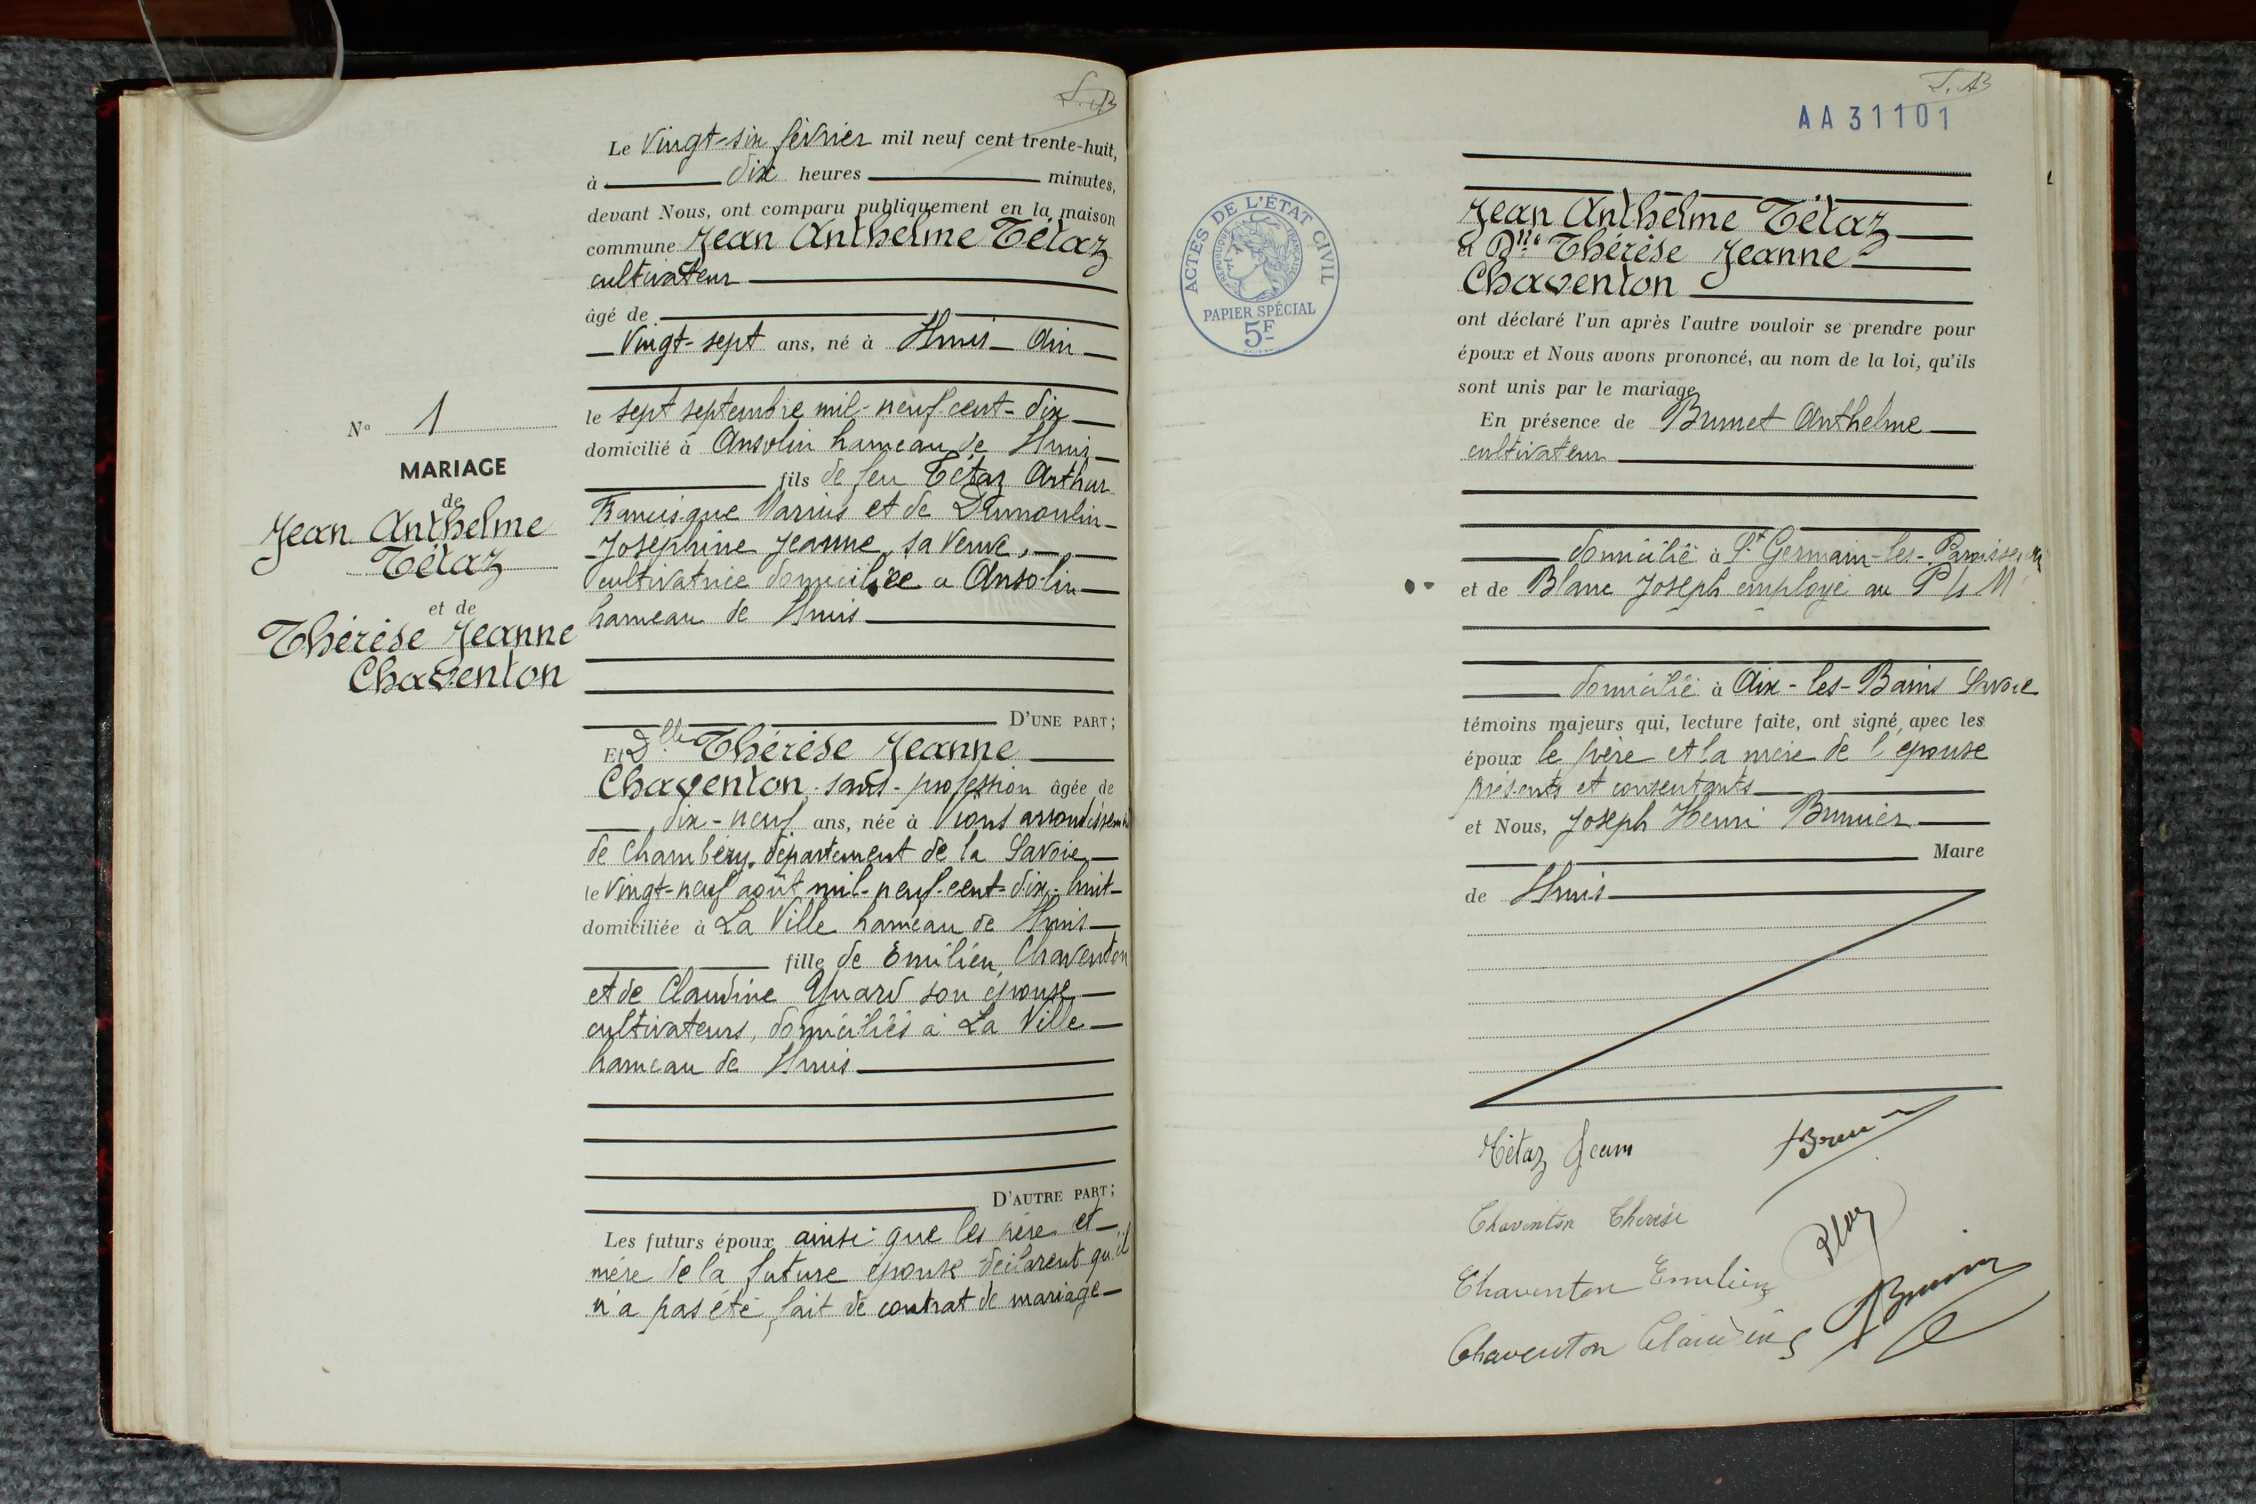 Le vingt-six février mil neuf cent trente-huit,
à dix heures minutes,
devant Nous, ont comparu publiquement en la maison
commune Jean Anthelme Tétaz
cultivateur
âgé de
vingt-sept ans, né à Huis Ain
le sept septembre mil-neuf-cent-dix
domicilié à Ansolin hameau de Huis
fils de feu Tétaz Arthur
Francisque Marius et de Dumoulin
Joséphine Jeanne, sa veuve,
cultivatrice domiciliée à Ansolin
hameau de Huis
D'UNE PART;
Et Dlle Thérèse Jeanne
Chaventon sans-profession âgée de
dix-neuf ans, née à Vions arrondissement
de Chambéry, département de la Savoie
le vingt-neuf août mil-neuf-cent-dix-huit
domiciliée à La Ville hameau de Huis
fille de Emilien Chaventon
et de Claudine Guard son épouse
cultivateurs, domiciliés à La Ville
hameau de Huis
D'AUTRE PART;
Les futurs époux ainsi que les père et
mère de la future épouse déclarent qu'il
n'a pas été fait de contrat de mariage
No 1
MARIAGE
de
Jean Anthelme
Tétaz
et de
Thérèse Jeanne
Chaventon
AA31101
ACTES DE L'ÉTAT CIVIL
RÉPUBLIQUE FRANÇAISE
PAPIER SPÉCIAL
5F
Jean Anthelme Tétaz
et Dlle Thérèse Jeanne
Chaventon
ont déclaré l'un après l'autre vouloir se prendre pour
époux et Nous avons prononcé, au nom de la loi, qu'ils
sont unis par le mariage
En présence de Brunet Anthelme
cultivateur
domicilié à St Germain-les-Paroisses
et de Blanc Joseph employé au P L M
domicilié à Aix-les-Bains Savoie
témoins majeurs qui, lecture faite, ont signé avec les
époux le père et la mère de l'épouse
présents et consentants
et Nous, Joseph Henri Brunier
Maire
de Huis
Tétaz Jean
Chaventon Thérèse
Chaventon Emilien
Chaventon Claudine
Brunier